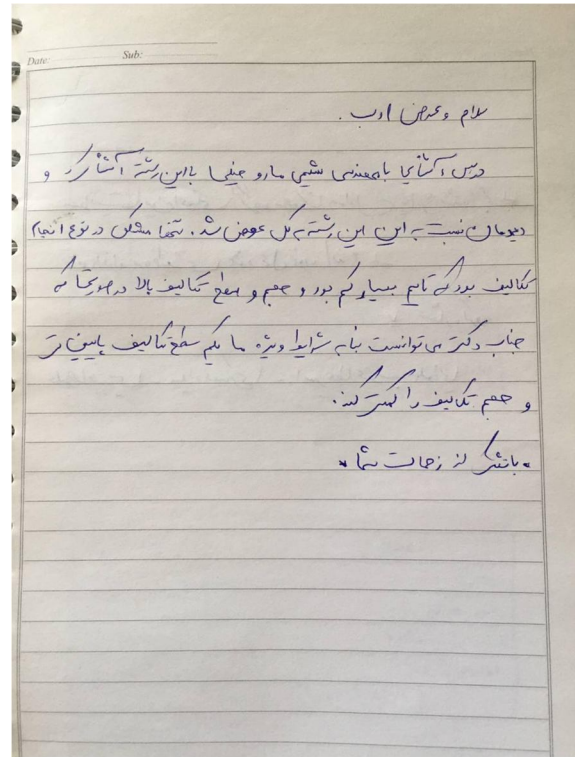 Date: Sub:
سلام و عرض ادب.
درس آشنایی با مهندسی شیمی مارو خیلی با این رشته آشنا کرد و
دیدمان نسبت به این این رشته به کل عوض شد. تنها مشکل در نوع انجام
تکالیف بود که تایم بسیار کم بود و حجم و سطح تکالیف بالا درصورتی که
جناب دکتر می توانست بنا به شرایط ویژه ما یکم سطح تکالیف پایین تر
و حجم تکالیف را کمتر کند.
* با تشکر از زحمات شما *